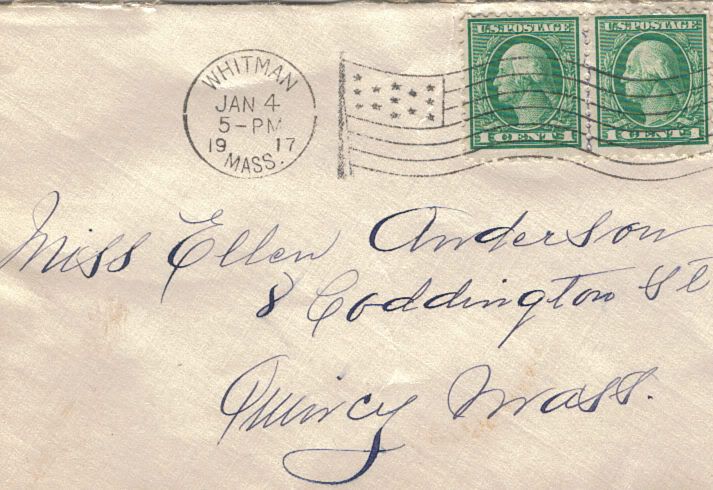 U.S. POSTAGE U.S. POSTAGE
1 CENT 1 1 CENT 1
WHITMAN
JAN 4
5-PM
19 17
MASS.
Miss Ellen Anderson
8 Coddington St
Quincy Mass.